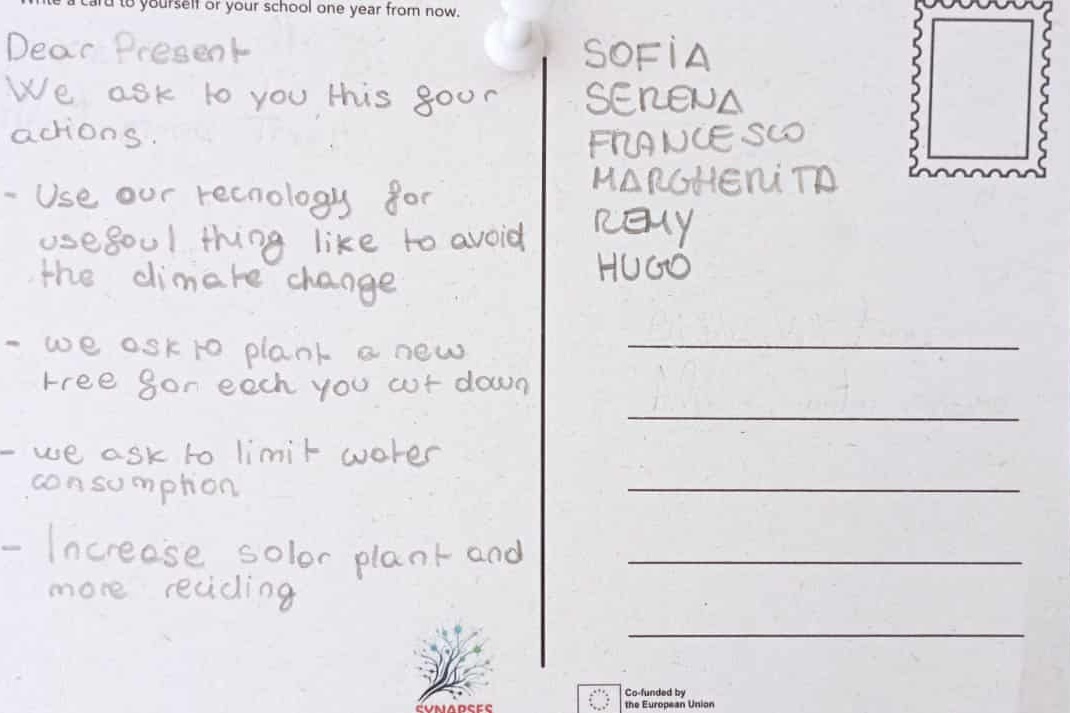 Write a card to yourself or your school one year from now.
Dear Present
We ask to you this four
actions.
- Use our tecnology for
usefoul thing like to avoid
the climate change
- we ask to plant a new
tree for each you cut down
- we ask to limit water
consumption
- Increase solar plant and
more reciding
SYNAPSES
SOFIA
SERENA
FRANCESCO
MARGHERITA
REMY
HUGO
Co-funded by
the European Union